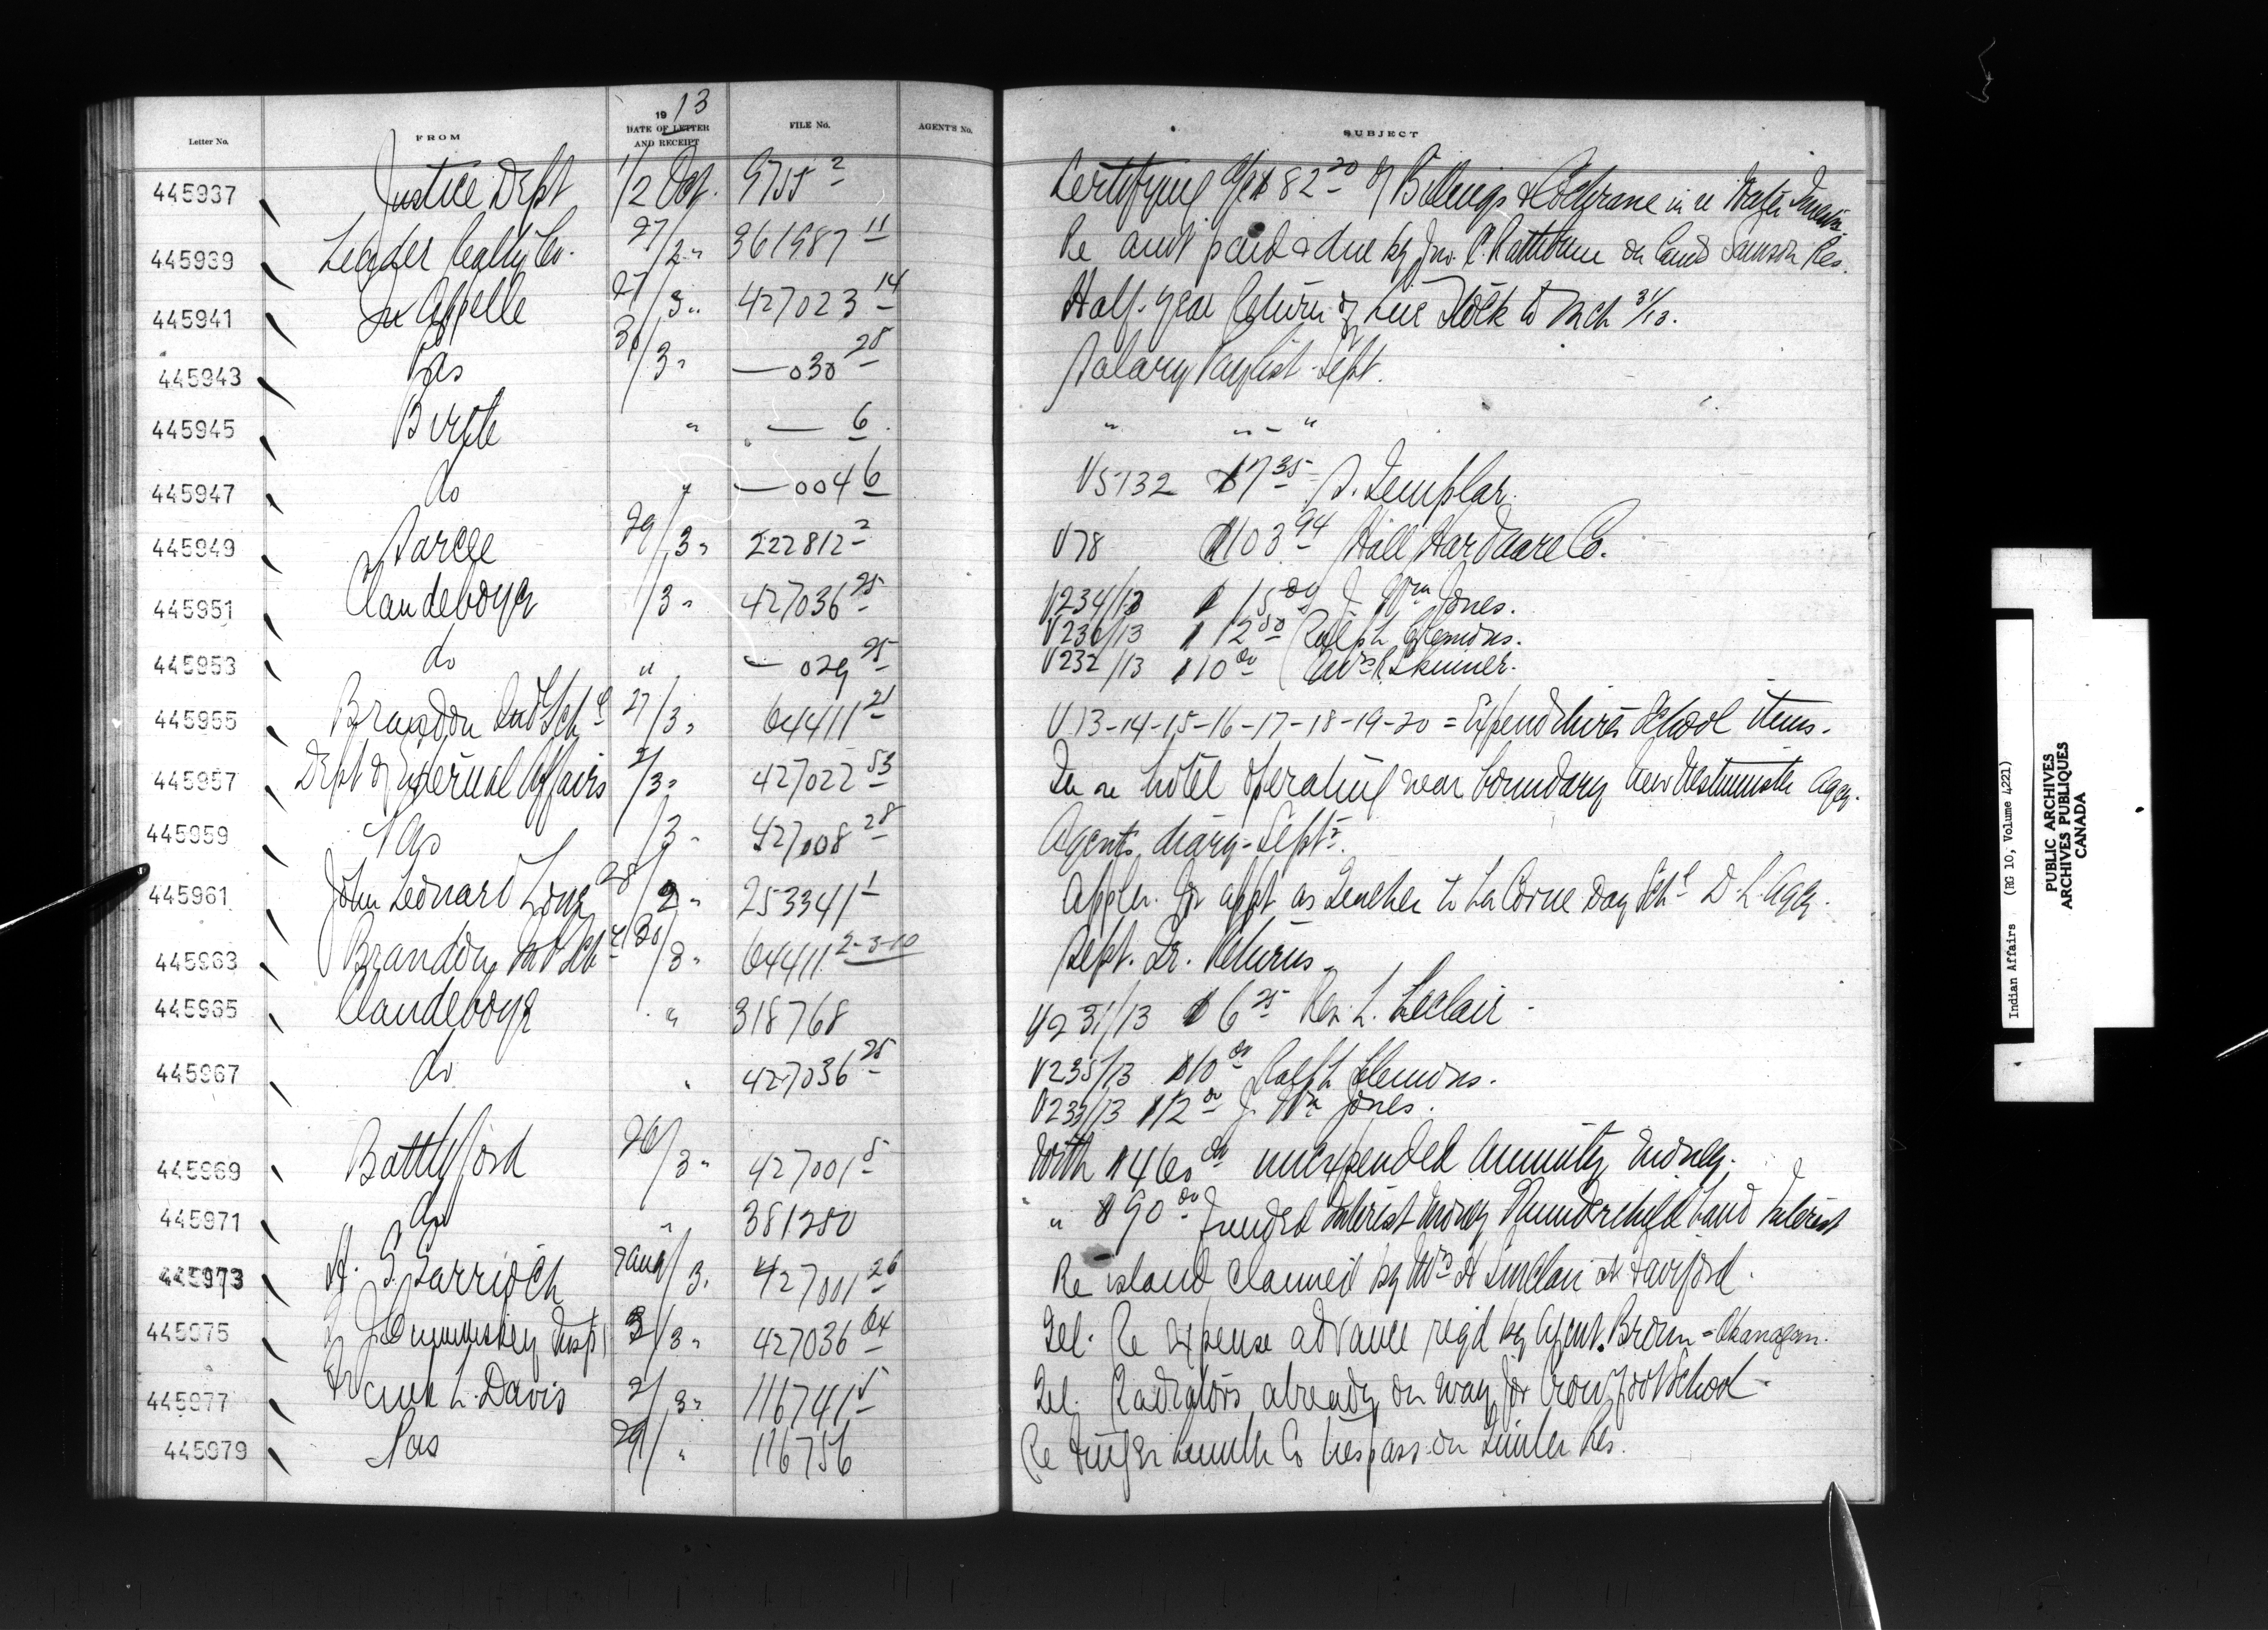 19 13
Letter No. FROM DATE OF LETTER AND RECEIPT FILE No. AGENT'S No. SUBJECT
445937 Justice Dept 1/2 Oct. 9755 2 Certifying a/c $82 20 of Billings & Cochrane in re Water
445939 Leader Realty Co. 27/2 " 361987 11 Re amt paid & due by Jno. C. Rathbun on land Samson Res.
445941 Qu'Appelle 27/3 " 427023 14 Half-year Return of Live Stock to Mch 31/13.
445943 Pas 3 " — 030 28 Salary Paylist Sept.
445945 Birtle " — 6 " " - "
445947 do " — 004 6 V5132 $7 35 Templar.
445949 Sarcee 29/3 " 222812 2 V78 $103 94 Hall Hardware Co.
445951 Clandeboye /3 " 427036 25 V234/13 $15 00 J. Wm Jones.
V236/13 $12 50 Ralph Clemons.
445953 do " — 029 25 V232/13 $10 00 Mrs R. Skinner.
445955 Brandon Ind Schl 27/3 " 64411 21 V13-14-15-16-17-18-19-20 = Expenditures School items.
445957 Dept of External Affairs 2/3 " 427022 53 In re hotel operating near boundary New Westminster Agcy.
445959 Pas /3 " 427008 28 Agents diary - Sept.
445961 John Leonard Long 28/2 " 253341 1 Appln. for appt as Teacher to La Corne Day Schl D. L. Agcy.
445963 Brandon Ind Schl /3 " 64411 2-3-10 Sept. Qr. Returns
445965 Clandeboye " 318768 V231/13 $6 25 Rev. L. Leclair
445967 do " 427036 25 V235/13 $10 00 Ralph Clemons.
V233/13 $12 00 J. Wm Jones.
445969 Battleford 26/3 " 427001 5 With $460 00 unexpended Annuity money.
445971 do " 381250 " $90 00 funded Interest money Thunderchild Land Interest
445973 A. S. Garrioch 3 " 427001 26 Re island claimed by Mrs A Sinclair at Fairford.
445975 Insp 3/3 " 427036 64 Tel. Re Expense advance reqd by Agent Brown = Okanagan.
445977 Frank L. Davis 2/3 " 116741 5 Tel. Radiators already on way for Crowfoot School
445979 Pas 29/ " 116756 Re Finger Lumber Co trespass on Timber Res.
Indian Affairs (RG 10, Volume 4221)
PUBLIC ARCHIVES
ARCHIVES PUBLIQUES
CANADA